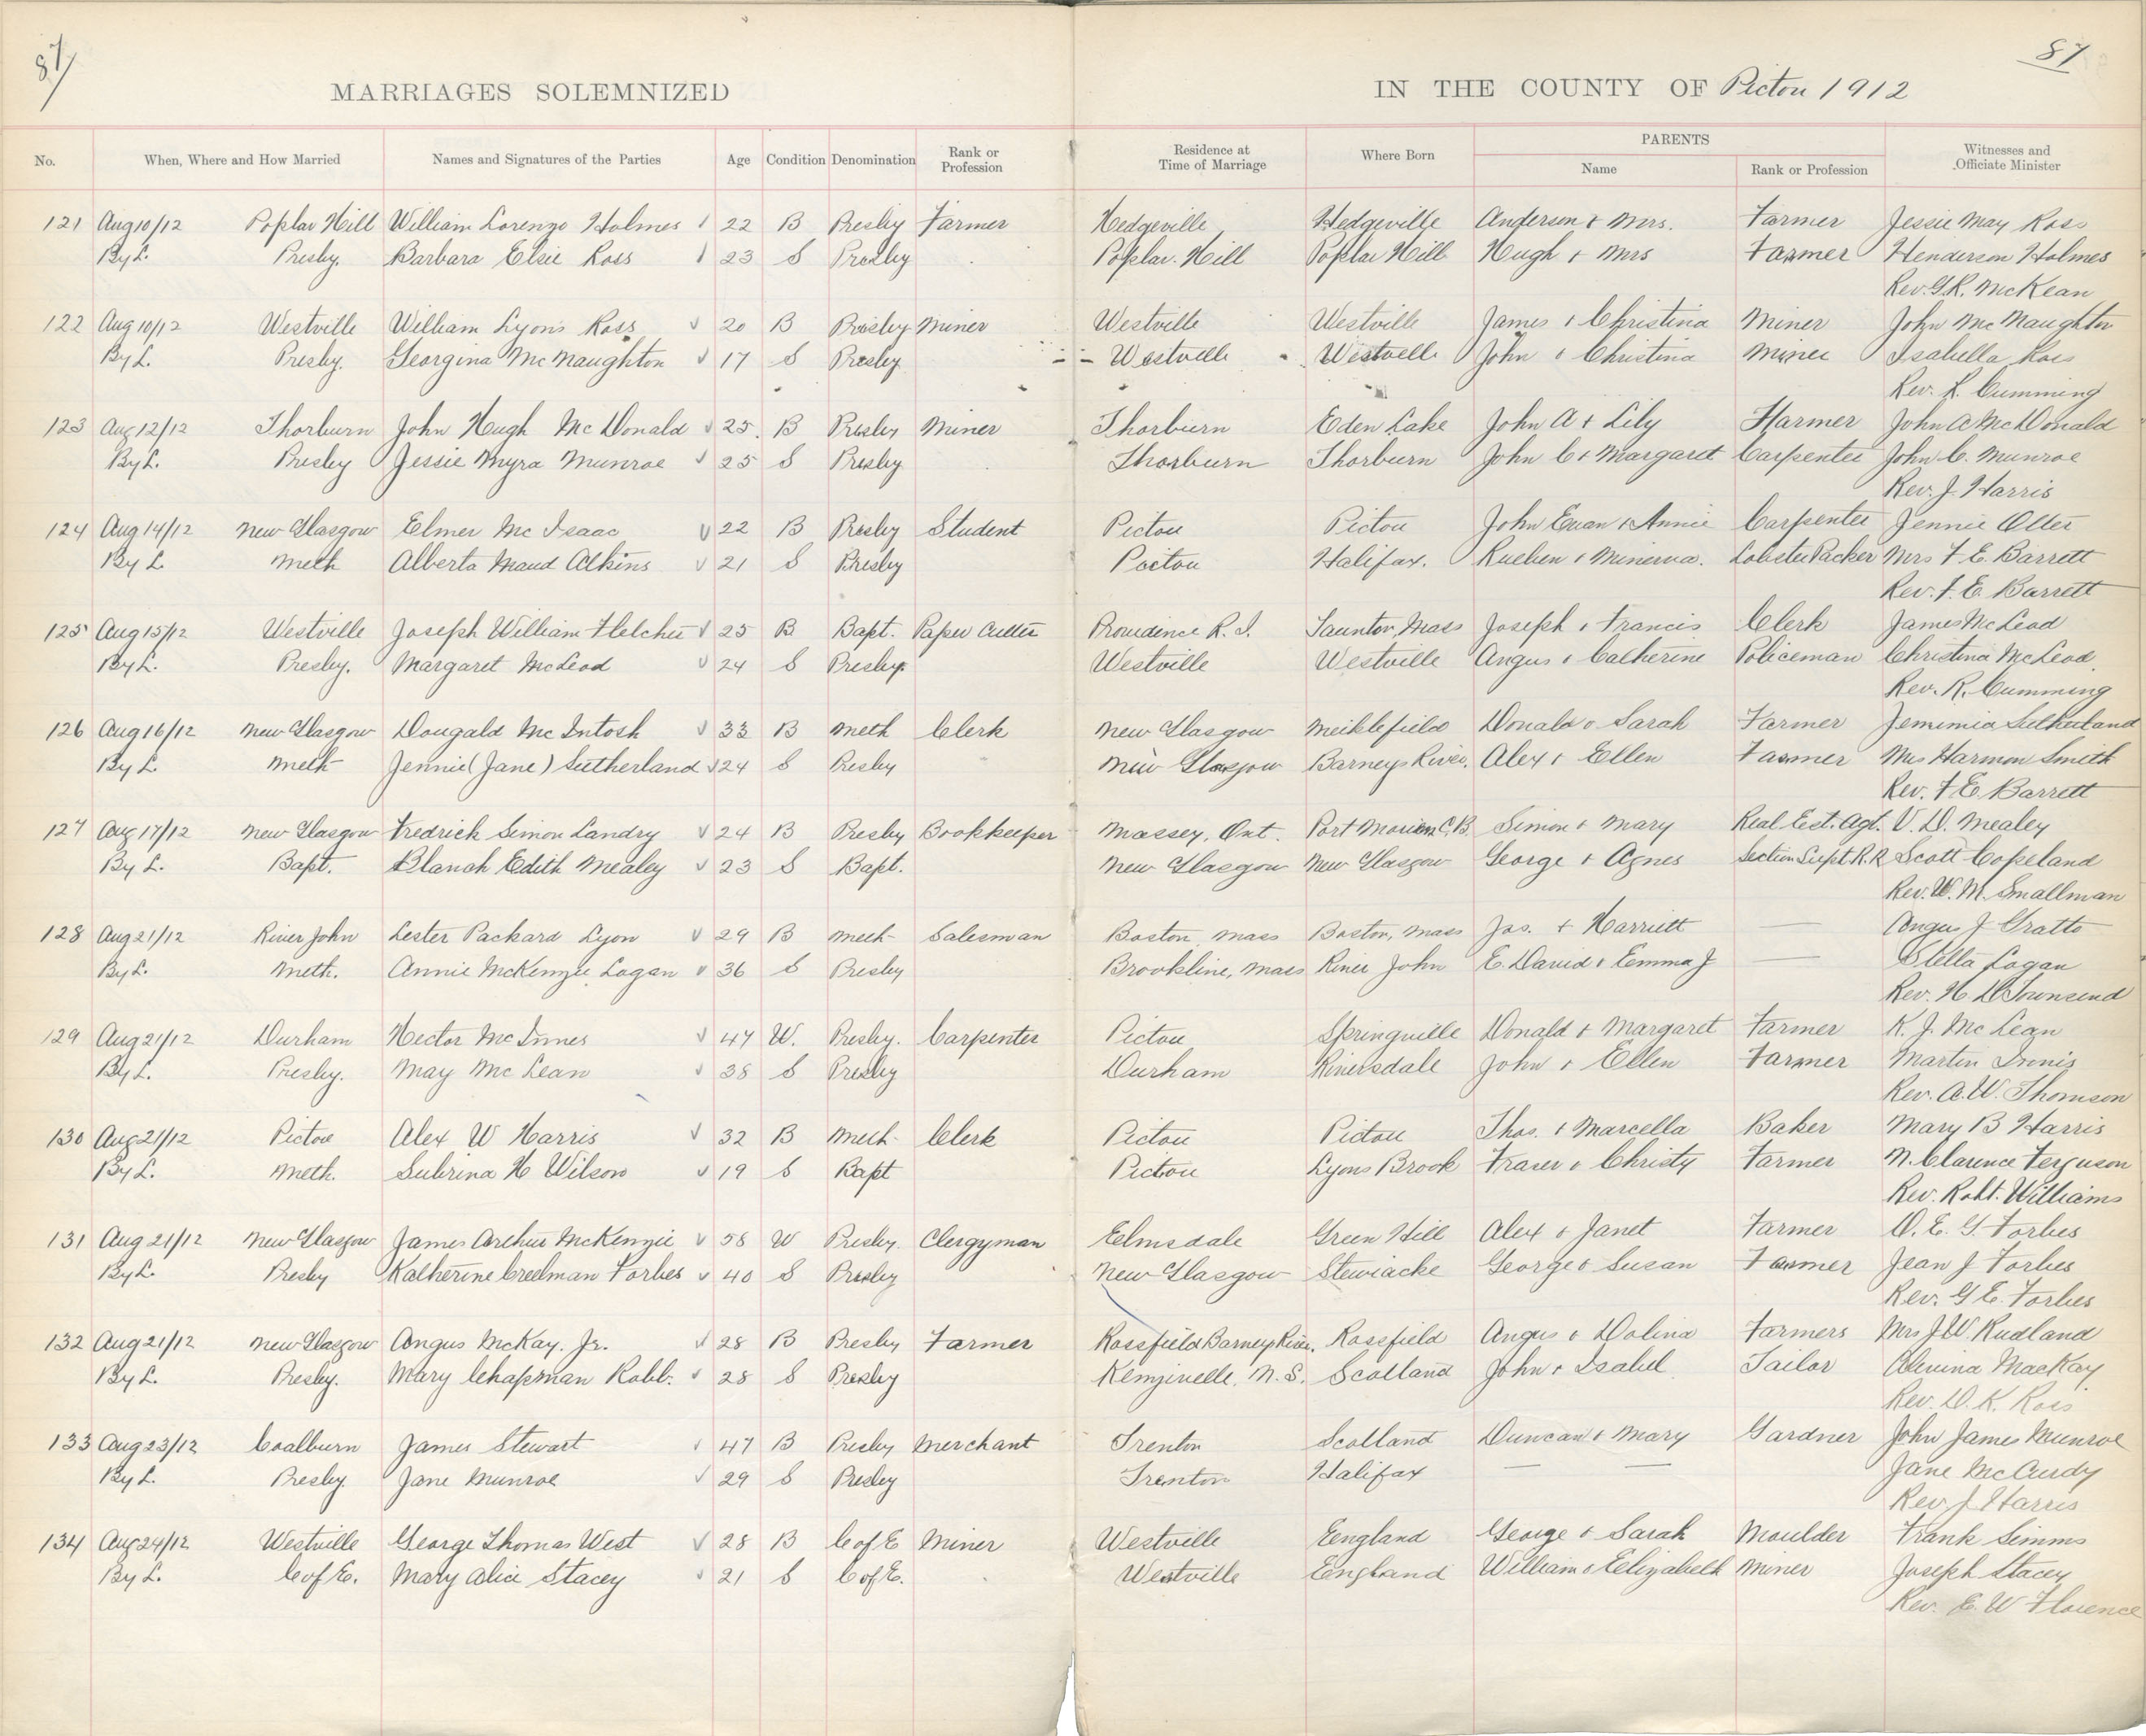 87
87
MARRIAGES SOLEMNIZED IN THE COUNTY OF Pictou 1912
No. When, Where and How Married Names and Signatures of the Parties Age Condition Denomination Rank or Profession Residence at Time of Marriage Where Born PARENTS Name Rank or Profession Witnesses and Officiate Minister
121 Aug 10/12 Poplar Hill William Lorenzo Holmes 22 B Presby Farmer Hedgeville Hedgeville Anderson + Mrs. Farmer Jessie May Ross
By L. Presby. Barbara Elsie Ross 23 S Presby Poplar Hill Poplar Hill Hugh + Mrs Farmer Henderson Holmes
Rev. G.R. McKean
122 Aug 10/12 Westville William Lyons Ross 20 B Presby Miner Westville Westville James + Christina Miner John McNaughton
By L. Presby. Georgina McNaughton 17 S Presby Westville Westville John + Christina Miner Isabella Ross
Rev. R. Cumming
123 Aug 12/12 Thorburn John Hugh McDonald 25 B Presby Miner Thorburn Eden Lake John A + Lily Farmer John A McDonald
By L. Presby Jessie Myra Munroe 25 S Presby Thorburn Thorburn John C + Margaret Carpenter John C. Munroe
Rev. J. Harris
124 Aug 14/12 New Glasgow Elmer McIsaac 22 B Presby Student Pictou Pictou John Euan + Annie Carpenter Jennie Olter
By L. Meth Alberta Maud Atkins 21 S Presby Pictou Halifax. Rueben + Minerva. Lobster Packer Mrs F. E. Barrett
Rev. F. E. Barrett
125 Aug 15/12 Westville Joseph William Fletcher 25 B Bapt. Paper Cutter Providence R. I. Taunton, Mass Joseph + Francis Clerk James McLeod
By L. Presby. Margaret McLeod 24 S Presby. Westville Westville Angus + Catherine Policeman Christina McLeod
Rev. R. Cumming
126 Aug 16/12 New Glasgow Dougald McIntosh 33 B Meth Clerk New Glasgow Meiklefield Donald + Sarah Farmer Jemimia Sutherland
By L. Meth Jennie (Jane) Sutherland 24 S Presby New Glasgow Barneys River. Alex + Ellen Farmer Mrs Harmon Smith
Rev. F. E. Barrett
127 Aug 17/12 New Glasgow Fredrick Simon Landry 24 B Presby Bookkeeper Massey, Ont. Port Morien C.B. Simon + Mary Real Est. Agt. V. D. Mealey
By L. Bapt. Blanch Edith Mealey 23 S Bapt. New Glasgow New Glasgow George + Agnes Section Supt R.R Scott Copeland
Rev. W. M. Smallman
128 Aug 21/12 River John Lester Packard Lyon 29 B Meth Salesman Boston, Mass Boston, Mass Jos. + Harriett — Angus J Gratto
By L. Meth. Annie McKenzie Logan 36 S Presby Brookline, Mass River John E. David + Emma J — Stella Logan
Rev. H D Townsend
129 Aug 21/12 Durham Hector McInnes 47 W. Presby. Carpenter Pictou Springville Donald + Margaret Farmer K. J. McLean
By L. Presby. May McLean 38 S Presby Durham Riversdale John + Ellen Farmer Martin Innis
Rev. A. W. Thomson
130 Aug 21/12 Pictou Alex W Harris 32 B Meth Clerk Pictou Pictou Thos. + Marcella Baker Mary B Harris
By L. Meth. Subrina H Wilson 19 S Bapt Pictou Lyons Brook Fraser + Christy Farmer N. Clarence Ferguson
Rev. Robt. Williams
131 Aug 21/12 New Glasgow James Arthur McKenzie 58 W Presby. Clergyman Elmsdale Green Hill Alex + Janet Farmer D. E. G. Forbes
By L. Presby Katherine Creelman Forbes 40 S Presby New Glasgow Stewiacke George + Susan Farmer Jean J Forbes
Rev. G. E. Forbes
132 Aug 21/12 New Glasgow Angus McKay. Jr. 28 B Presby Farmer Rossfield Barneys River. Rossfield Angus + Dolina Farmers Mrs J. W. Rudland
By L. Presby. Mary Chapman Robb. 28 S Presby Kemjivelle, N. S. Scotland John + Isabel Tailor Alevina MacKay
Rev. D. K. Ross
133 Aug 23/12 Coalburn James Stewart 47 B Presby Merchant Trenton Scotland Duncan + Mary Gardner John James Munroe
By L. Presby. Jane Munroe 29 S Presby Trenton Halifax — — Jane McCurdy
Rev. J Harris
134 Aug 24/12 Westville George Thomas West 28 B C of E Miner Westville England George + Sarah Moulder Frank Simms
By L. C of E. Mary Alice Stacey 21 S C of E. Westville England William + Elizabeth Miner Joseph Stacey
Rev. E. W Florence